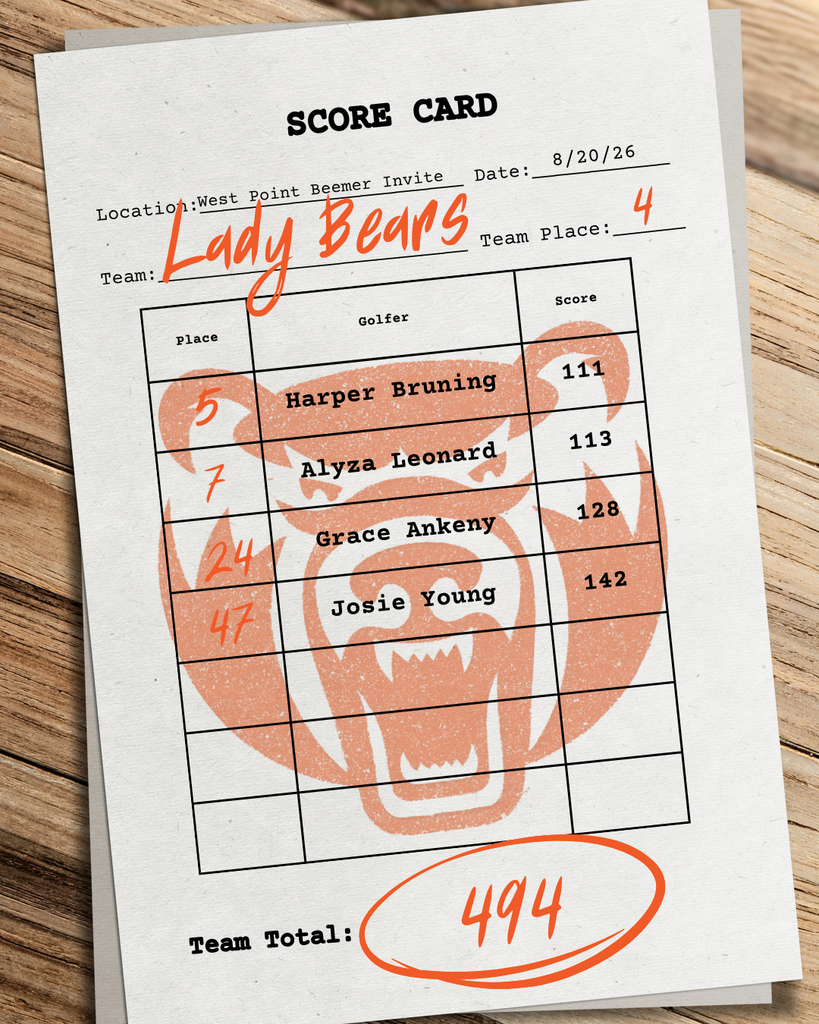 SCORE CARD
Location: West Point Beemer Invite Date: 8/20/26
Team: Lady Bears Team Place: 4
Place Golfer Score
5 Harper Bruning 111
7 Alyza Leonard 113
24 Grace Ankeny 128
47 Josie Young 142
Team Total: 494